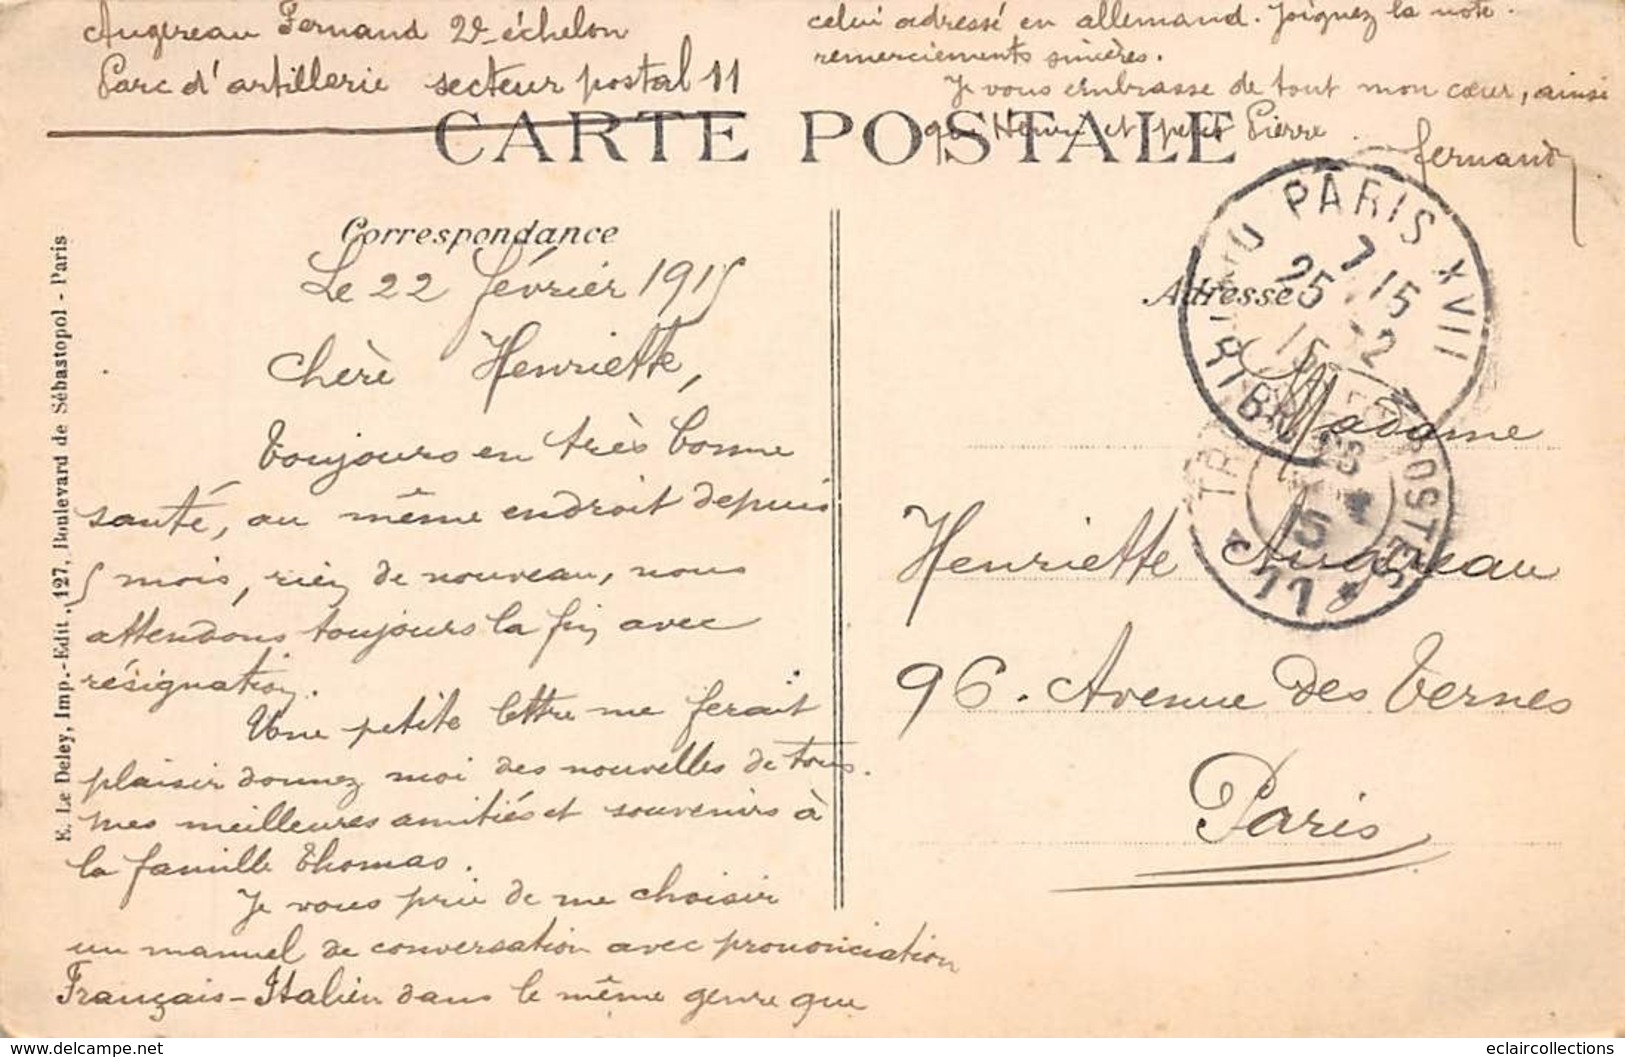 Augereau Fernand 2e échelon
Parc d'artillerie secteur postal 11
celui adressé en allemand. Joignez la note.
remerciements sincères.
Je vous embrasse de tout mon cœur, ainsi
que Henri et petit Pierre
fernand
CARTE POSTALE
Correspondance
Le 22 février 1915
Chère Henriette,
Toujours en très bonne
santé, au même endroit depuis
5 mois, rien de nouveau, nous
attendons toujours la fin avec
résignation.
Une petite lettre me ferait
plaisir donnez moi des nouvelles de tous.
Mes meilleures amitiés et souvenirs à
la famille Thomas.
Je vous prie de me choisir
un manuel de conversation avec prononciation
Français-Italien dans le même genre que
E. Le Deley, Imp.-Edit., 127, Boulevard de Sébastopol - Paris
Adresse
PARIS XVII
7 15
25 2
15
POSTES
11
Madame
Henriette Augereau
96. Avenue des Ternes
Paris
https://www.delcampe.net
eclaircollections